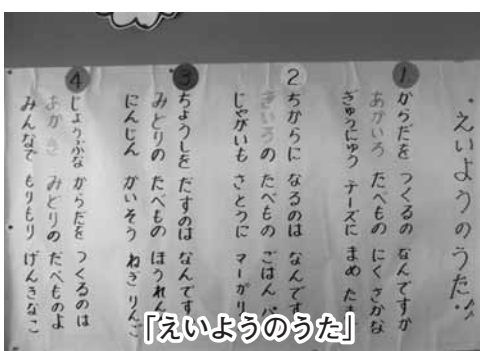 えいようのうた
1 からだを つくるの なんですか
あかいろ たべもの にくさかな
ぎゅうにゅう チーズに まめ た
2 ちからに なるのは なんです
きいろの たべもの ごはん
じゃがいも さとうに マーガリ
3 ちょうしを だすのは なんです
みどりの たべもの ほうれん
にんじん かいそう ねぎ りんご
4 じょうぶな からだを つくるのは
あか き みどりの たべものよ
みんなで もりもり げんきなこ
「えいようのうた」